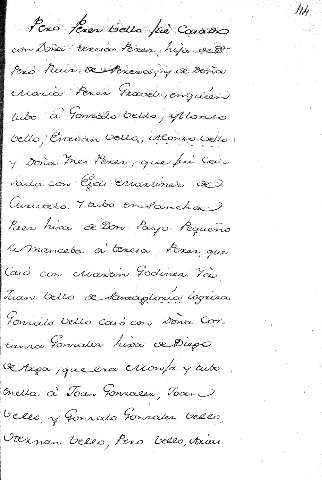 44
Pero Perez Vello fué Casado
con Doña teresa Perez, hija de Dn
Pero Ruiz de y de Doña
Maria Perez Gravel, en quien
tubo á Gonzalo Vello, Alonso
Vello, Estevan Vello, Alonso Vello
y Doña Ines Perez, que fué Ca-
sada con Egas Martinez de
y tubo en Sancha
Paez hixa de Don Payo Pequeño
su Manceba á teresa Perez, que
casó con Martin Godinez
Juan Vello de
Gonzalo Vello casó con Doña Cos-
tanza Gonzalez hixa de Diego
de que era Monja y tubo
en ella á Joan Gonzalez, Joan
Vello, y Gonzalo Gonzalez Vello,
Hernan Vello, Pero Vello, Arias